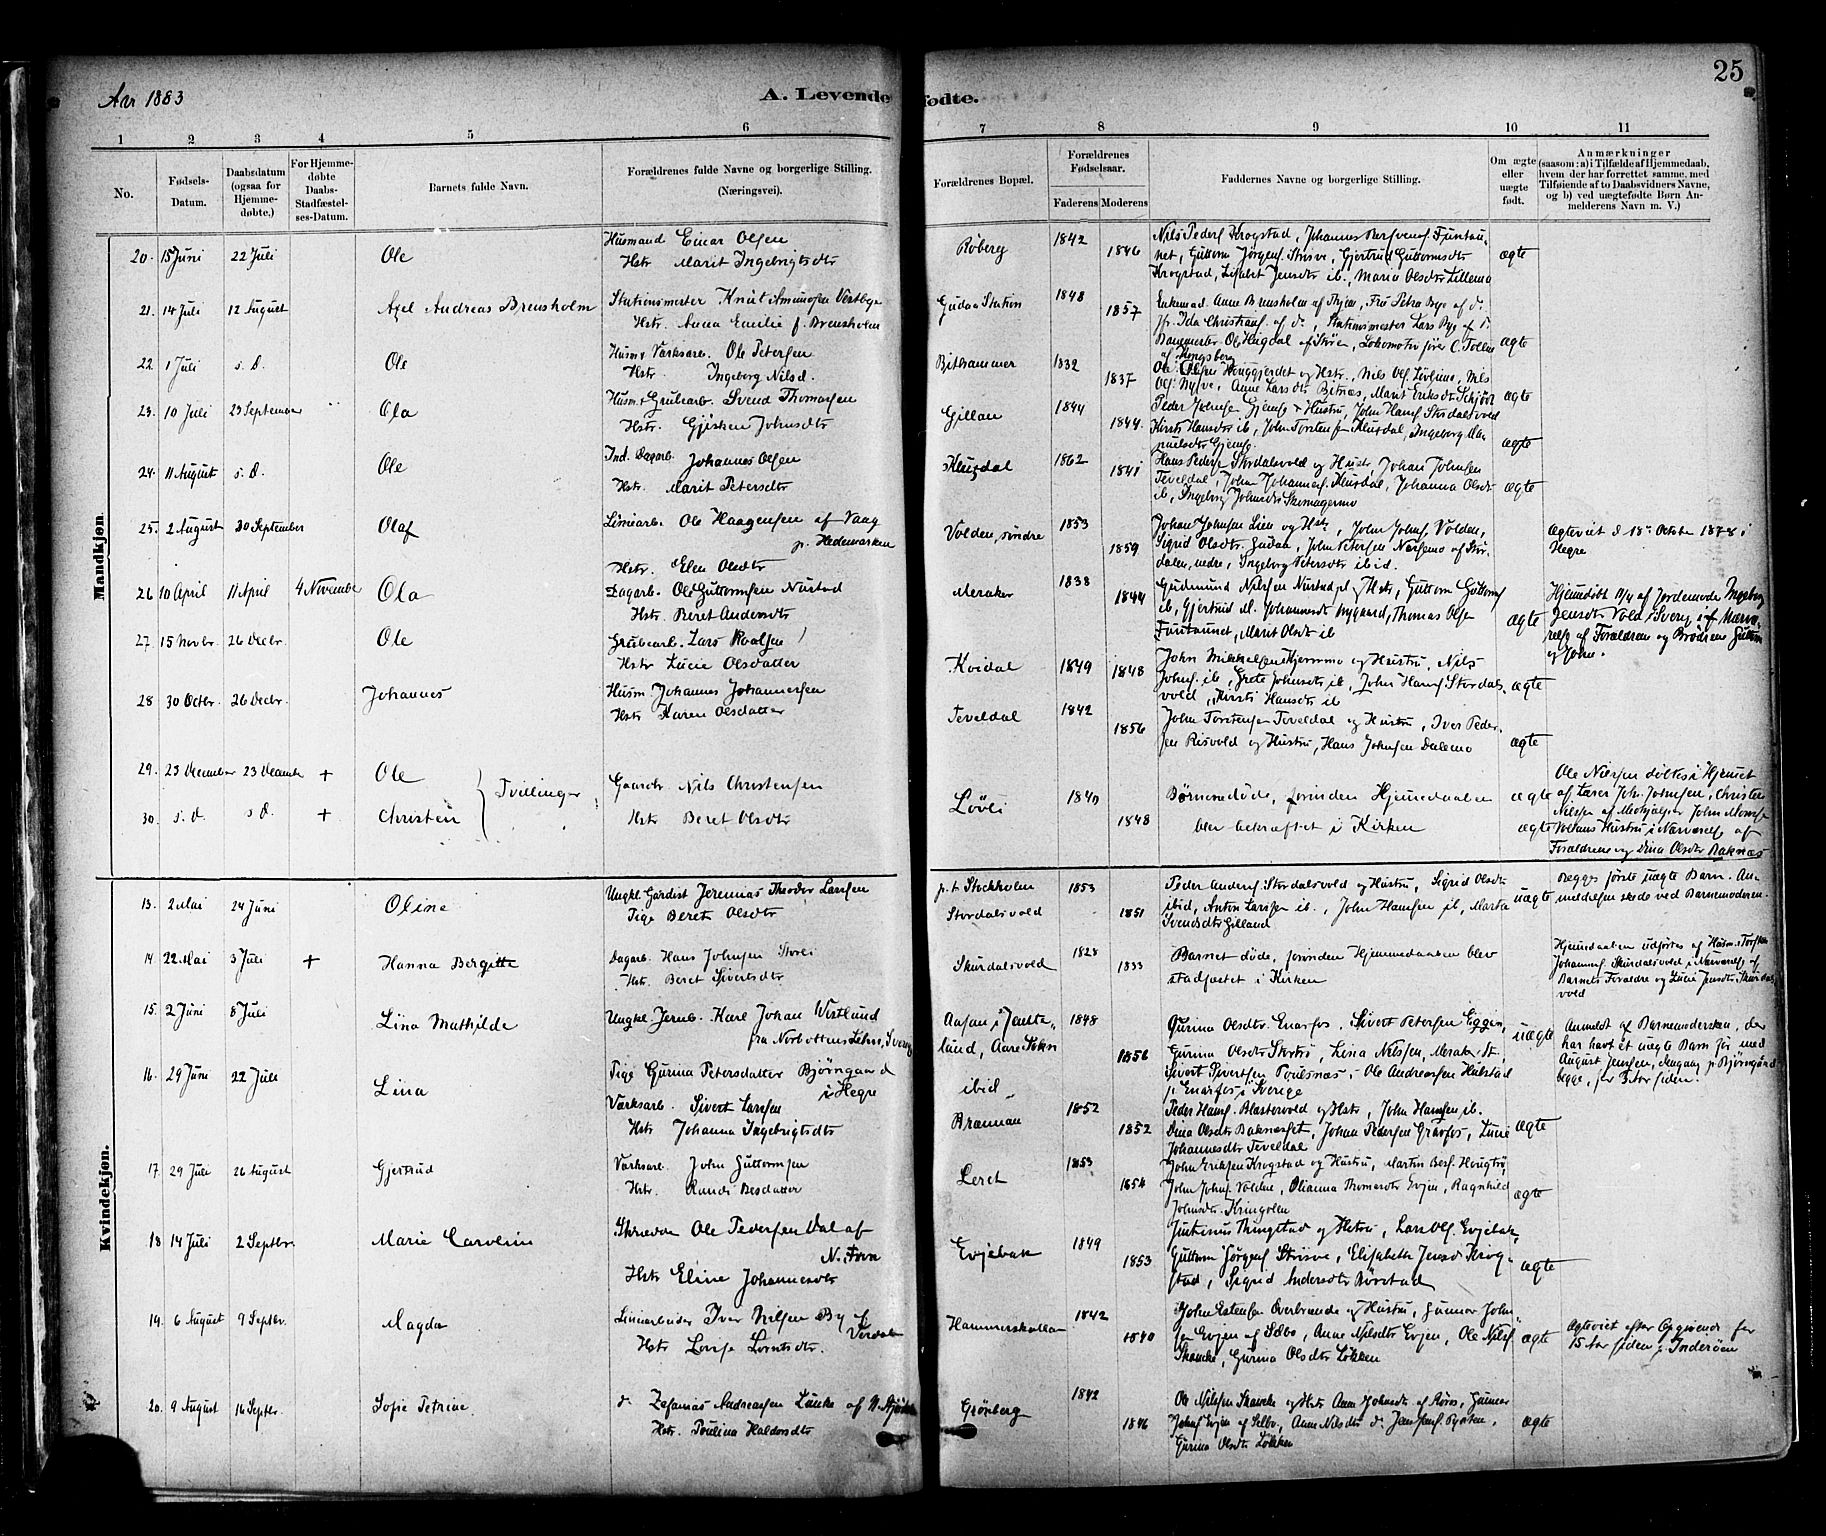 Aar 1883
A. Levende fødte.
25
1 2 3 4 5 6 7 8 9 10 11
No.
Fødsels-Datum.
Daabsdatum (ogsaa for Hjemme-døbte.)
For Hjemme-døbte Daabs-Stadfæstel-ses-Datum.
Barnets fulde Navn.
Forældrenes fulde Navne og borgerlige Stilling. (Næringsvei).
Forældrenes Bopæl.
Forældrenes Fødselsaar.
Faderens Moderens
Faddernes Navne og borgerlige Stilling.
Om ægte eller uægte født.
Anmærkninger
(saasom: a) i Tilfælde af Hjemmedaab,
hvem der har forrettet samme, med
Tilføiende af to Daabsvidners Navne,
og b) ved uægtefødte Børn An-
melderens Navn m. V.)
Mandkjøn
20. 15 Juni 22 Juli Ole Husmand Einar Olsen
Hstr Marit Ingebrigtsdtr
Røberg 1842 1846
Nils Peders. Krogstad, Johannes
net, Guttorm Jørgens. Strisve, Gjertrud Guttormsdtr
Krogstad, Lisabet Jensdtr ib, Maria Olsdtr Lillemo
ægte
21. 14 Juli 12 August Axel Andreas Brensholm Stationsmester Knut Amundsen Vestbye
Hstr. Anna Emilie f. Brensholm
Gudaa Station 1848 1857
Enkemad. Anne Brensholm af Thjem, Fru Petra Bye af d.
jfr. Ida Christians. af d., Stationsmester Lars Bye af d.
Banemester Ole Hugdal af Støren, Lokomotivfører C. Tollen
af Kongsberg
ægte
22. 1 Juli s. D. Ole Husm & Værksarb. Ole Petersen
Hstr. Ingeborg Nilsd.
Bithammer 1832 1837
Ole Olsen Hauggjerdet og Hstr., Nils Ols. Løvlimo, Nils
Ols. Nyve, Anne Larsdtr Bitnæs, Marit Eriksdtr
ægte
23. 10 Juli 23 September Ola Husm & Grubearb. Svend Thomassen
Hstr. Gjertru Johnsdtr
Gillan 1844 1844
Peder Johns. Gjems & Hustru, John Hans. Stordalsvold
Kirsti Hansdtr ib, John Torstens. Klugdal, Ingeborg
Gjems.
ægte
24. 11 August s. D. Ole Ind. Dagarb. Johannes Olsen
Hstr. Marit Petersdtr
Klugdal 1862 1841
Hans Peders. Stordalsvold og Hustr., Johan Johnsen
Teveldal, John Johannes. Klugdal, Johanna Olsdt
ib, Ingeborg Johnsdtr Skomagermo
ægte
25. 2 August 30 September Olaf Liniearb. Ole Haagensen af Vaag
p. Hedemarken
Hstr. Elen Olsdtr
Volden, søndre 1853 1859
Johan Johnsen Lien og Hstr, John Johns. Volden,
Sigrid Olsdtr. Gudaa, John Petersen Næsemo af Stør-
dalen, nedre, Ingeborg Petersdtr ibid.
Ægteviet d. 18de October 1878 i
Hegre
26 10 April 11 April 4 November Ola Dagarb. Ole Guttormsen Nustad
Hstr. Beret Andersdtr
Meraker 1838 1844
Gudmund Nilsen Nustad p. Hstr, Guttorm Guttorms.
ib, Gjertrud M. Johannesdtr Nygaard, Thomas Olsen
Funtaunet, Marit Olsdtr ib
ægte
Hjemmedøbt 11/4 af Jordemoder Ingeborg
Jensdtr Vold i Sverig, i Nærvæ-
relse af Forældrene og Brødrene Guttorm
og John.
27. 15 Novbr. 26 Decbr. Ole Grubearb. Lars Roalsen
Hstr Lucie Olsdatter
Kvidal 1849 1848
John Mikkelsen Hjermmo og Hustru, Nils
Johns. ib, Grete Johnsdtr ib, John Hans. Stordals-
vold, Kirsti Hansdtr ib
ægte
28 30 Octbr. 26 Decbr. Johannes Husm Johannes Johannessen
Hstr Karen Olsdatter
Teveldal 1842 1856
John Torstensen Teveldal og Hustru, Iver Peder-
sen Risvold og Hustru, Hans Johnsen Dalemo
ægte
29. 23 December 23 December + Ole Tvillinger Gaardbr Nils Christensen
30. s. d. s D. + Christen Hstr Beret Olsdtr
Løvli 1840 1848
Børnene døde, forinden Hjemmedaaben
blev bekræftet i Kirken
ægte
ægte
Ole Nilssen døbtes i Hjemmet
af Lærer Joh. Johnsen, Christen
Nilsen af Medhjælper John Monsen
Voldens Hustru i Nærværelse af
Forældrene og Dina Olsdtr Baknæs
Kvindekjøn.
13. 2 Mai 24 Juni Oline Ungkl. Gardist Jeremias Theodor Larsen
Pige Beret Olsdtr
p. t Stockholm
Stordalsvold 1853 1851
Peder Anders. Stordalsvold og Hustru, Sigrid Olsdtr
ibid, Anton Larssen ib., John Hansen ib, Marta
Svendsdtr Gilland
uægte
Begges første uægte Barn. An-
meldelsen skede ved Barnemoderen.
14 22 Mai 3 Juli + Hanna Bergitte Dagarb. Hans Johnsen Storli
Hstr. Beret Sivertsdtr
Skurdalsvold 1828 1833
Barnet døde, forinden Hjemmedaaben blev
stadfæstet i Kirken
Hjemmedaaben udførtes af Husm. Torsten
Johannes. Skurdalsvold i Nærværelse af
Barnets Forældre og Lucie Jensdtr, Skurdals-
vold
15. 2 Juni 8 Juli Lina Mathilde Ungkl. Jernb. Karl Johan Wistlund
fra Norbottens Lehn, Sverig
Pige Gurina Petersdatter Bjørngaard
i Hegre
Aasan i Jemte-
lund, Aare Sokn
ibid 1848 1856
Gurina Olsdtr. Enafos, Sivert Petersen Eggen,
Gurina Olsdtr Skortrø, Lina Nilssen, Merak. St.
Sivert Sivertsen Poulsnæs, Ole Andreassen Hulstad
p. Enafos i Sverige
uægte
Anmeldt af Barnemoderskan, der
har havt et uægte Barn før med
August Jenssen, Ungang p. Bjørngaard
begge, for 3 Aar siden.
16. 29 Juni 22 Juli Lina Værksarb. Sivert Larssen
Hstr Johanna Ingebrigtsdtr
Brænnan 1852 1852
Peder Hans. Blæstervold og Hstr, John Hanssen ib.
Dina Olsdtr Baknæsset, Johan Pedersen Graafos, Lucie
Johannesdtr Teveldal
ægte
17. 29 Juli 26 August Gjertrud Værksarb. John Guttormsen
Hstr. Randi Besdatter
Leret 1853 1854
John Eriksen Krogstad og Hustru, Martin Bers. Hougtrø,
John Johns. Volden, Olianna Thomasdtr Evjen, Ragnhild
Johnsdtr. Kringelen
ægte
18 14 Juli 2 Septbr. Marie Carolin Skrædder Ole Pedersen Dal af
N. Tørn
Hstr Eline Johannesdtr
Evjebak 1849 1853
Justinus Thingstad og Hstru, Lars Ols. Evjebak,
Guttorm Jørgens. Strisve, Elisabeth Jensd Krog-
stad, Sigrid Andersdtr Børstad
ægte
19. 6 August 9 Septbr. Magda Liniearbeider Iver Nilsen By af
Verdalen
Hstr Lovise Lorntsdtr.
Hammerskallen 1842 1840
John Estensen Overbrænde og Hustru, Gunnar John-
sen Evjen af Sælbo, Anne Nilsdtr Evjen, Ole Nils.
Skancke, Gurina Olsdtr Løkken
ægte
Ægteviet efter Opgivende for
15 Aar siden p. Inderøen
20. 9 August 16 Septbr. Sofie Petrine d. Zefanias Andreassen Lunke af N. Stjørd.
Hstr. Poulina Haldorsdtr
Grønberg 1842 1846
Ole Nilssen Skancke og Hstr Anna Johnsdt af Røros, Gunnar
Johns. Evjen af Selbo, Anne Nilsdtr d.
Gurina Olsdtr Løkken
ægte